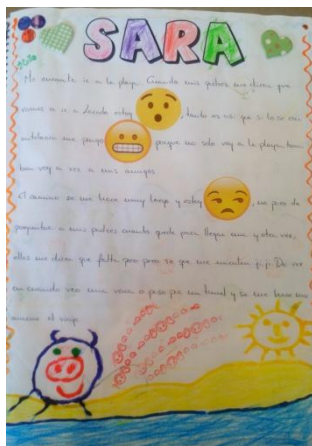 SARA
Me encanta ir a la playa. Cuando mis padres me dicen que
vamos a ir a estoy , tanto es así que si lo se con
antelación me pongo porque no solo voy a la playa, tam
bien voy a ver a mis amigos.
El camino se me hace muy largo y estoy , no paro de
preguntar a mis padres cuanto queda para llegar una y otra vez,
ellos me dicen que falta poco pero se que me mienten j.j. De vez
en cuando veo una vaca o paso por un tunel y se me hace mas
ameno el viaje.